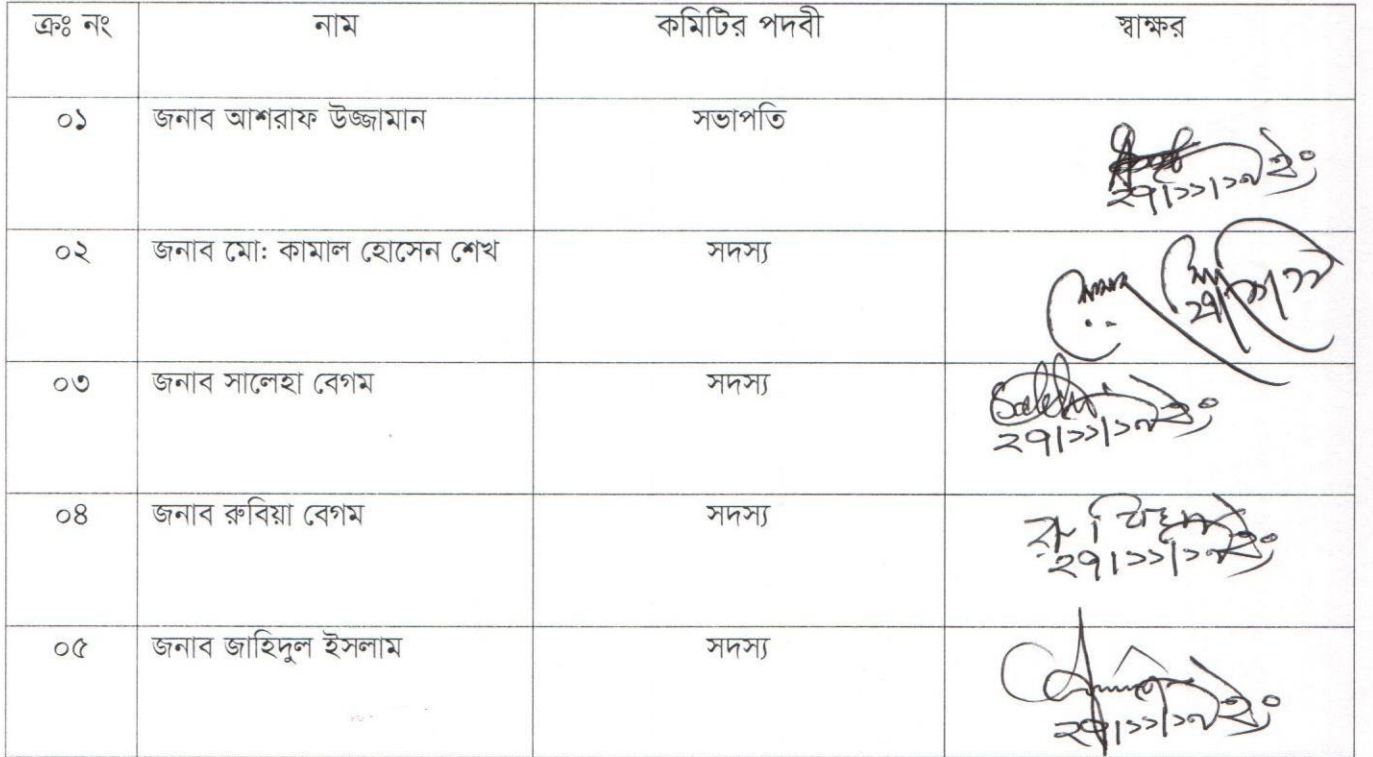 ক্রঃ নং নাম কমিটির পদবী স্বাক্ষর
০১ জনাব আশরাফ উজ্জামান সভাপতি
২৭।১১।১৯ইং
০২ জনাব মো: কামাল হোসেন শেখ সদস্য
০৩ জনাব সালেহা বেগম সদস্য Saleha
২৭।১১।১৯ইং
০৪ জনাব রুবিয়া বেগম সদস্য
২৭।১১।১৯ইং
০৫ জনাব জাহিদুল ইসলাম সদস্য
২৭।১১।১৯ইং